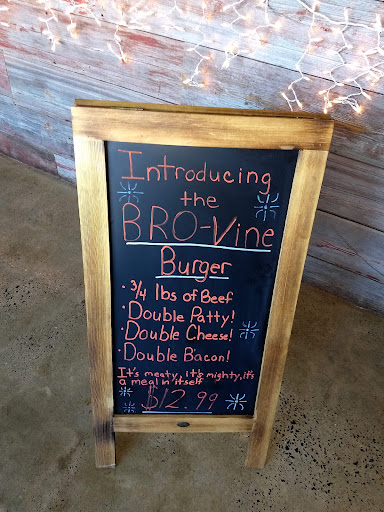 Introducing
the
BRO-Vine
Burger
· 3/4 lbs of Beef
· Double Patty!
· Double Cheese!
· Double Bacon!
It's meaty, it's mighty, it's
a meal in itself
$12.99